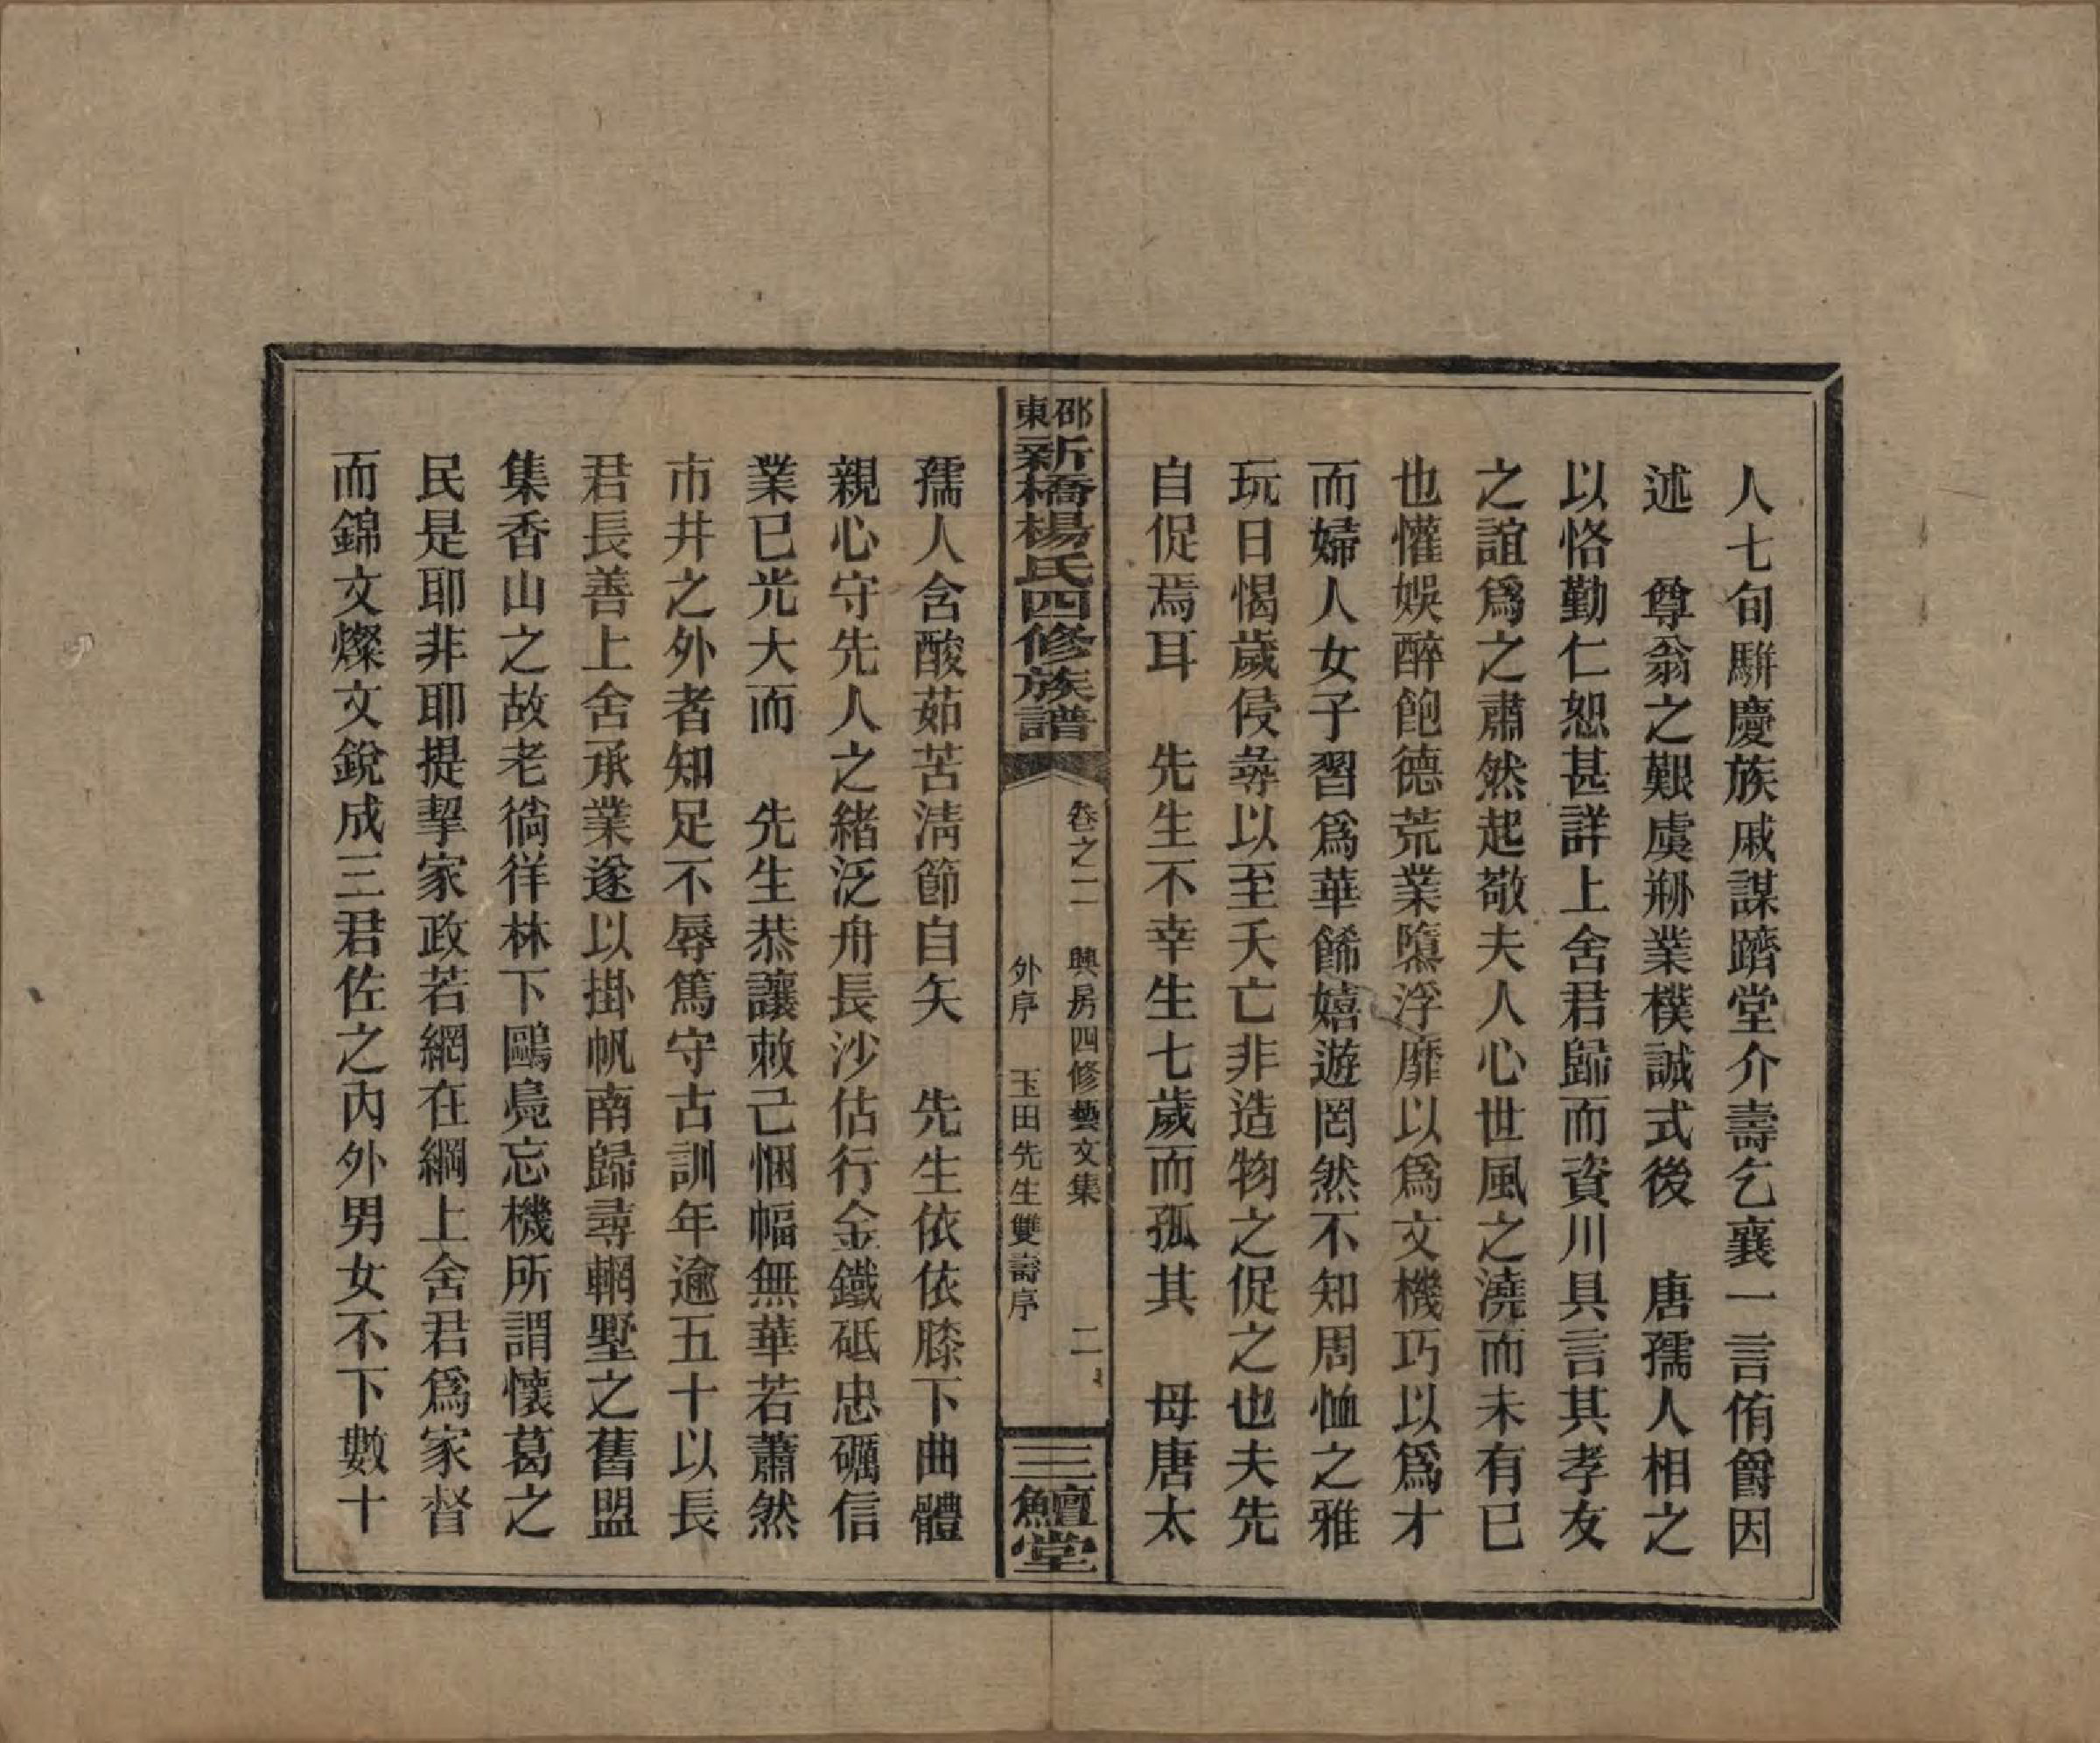 人七旬駢慶族戚謀躋堂介壽乞襄一言侑爵因
述　尊翁之艱虞刱業樸誠式後　唐孺人相之
以恪勤仁恕甚詳上舍君歸而資川具言其孝友
之誼爲之肅然起敬夫人心世風之澆而未有已
也懽娛醉飽德荒業隳浮靡以爲文機巧以爲才
而婦人女子習爲華餙嬉遊罔然不知周恤之雅
玩日愒歲侵尋以至夭亡非造物之促之也夫先
自促焉耳　先生不幸生七歲而孤其　母唐太
邵東新橋楊氏四修族譜
卷之二　興房四修藝文集　二
外序　玉田先生雙壽序
三鱣堂
孺人含酸茹苦淸節自矢　先生依依膝下曲體
親心守先人之緒泛舟長沙估行金鐵砥忠礪信
業已光大而　先生恭讓敕己悃幅無華若蕭然
市井之外者知足不辱篤守古訓年逾五十以長
君長善上舍承業遂以掛帆南歸尋輞墅之舊盟
集香山之故老徜徉林下鷗鳧忘機所謂懷葛之
民是耶非耶提挈家政若網在綱上舍君爲家督
而錦文燦文銳成三君佐之內外男女不下數十